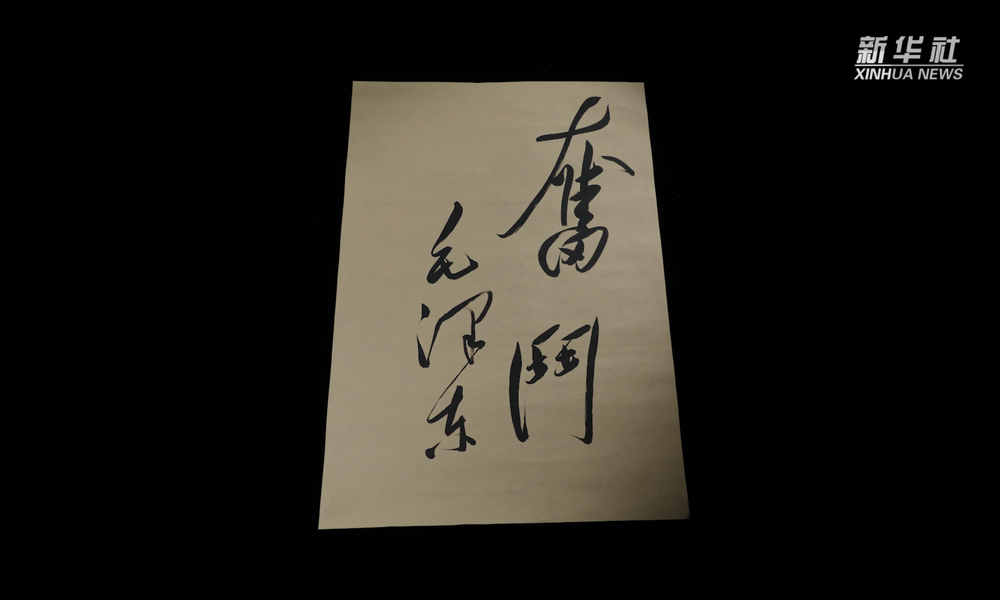 新华社
XINHUA NEWS
奮鬥
毛泽东